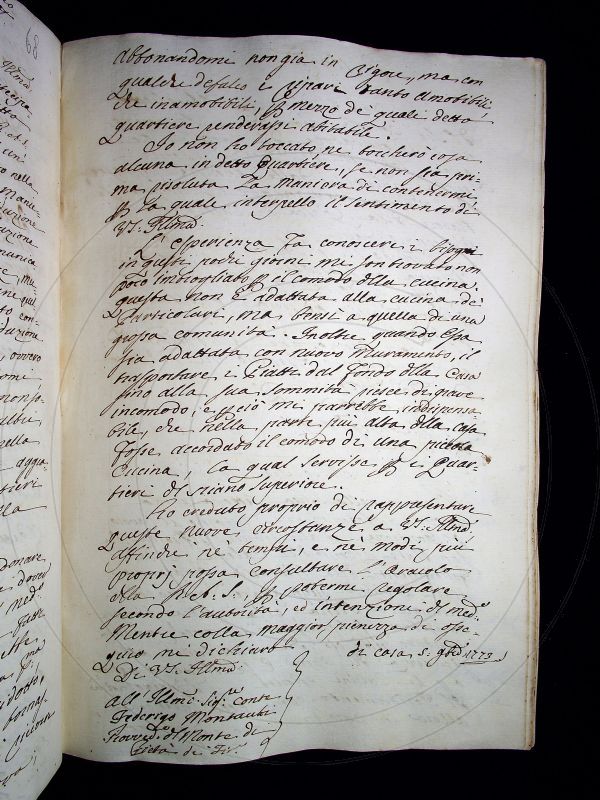 68
abbonandomi non già in Vigore, ma con
qualche defalco i Ripari tanto amobibili
che inamobibili, p mezzo de quali detto
quartiere renderassi abitabile.
Io non ho toccato, ne toccherò cosa
alcuna in detto Quartiere, se non sia pri-
ma risoluta la maniera di contenermi
p la quale interpello il sentimento di
VS. Illma
L'esperienza fa conoscere i bisogni
in questi pochi giorni mi son trovato non
poco imbrogliato p il comodo della cucina.
questa non è adattata alla cucina di
Particolari, ma bensì a quella di una
grossa comunità. Inoltre quando essa
sia adattata con nuovo Muramento, il
trasportare i Piatti dal fondo della Casa
fino alla sua sommità riesce di grave
incomodo, e p ciò mi parrebbe indispensa
bile, che nella parte più alta della casa
fosse accordato il comodo di una piccola
Cucina, la qual servisse p i Quar-
tieri del piano superiore.
Ho creduto proprio di rappresentare
queste nuove circostanze a VS. Illma
affinche ne tempi, e nè modi più
proprj possa consultare l'Oracolo
della R.A.S., p potermi regolare
secondo l'autorità, ed intenzione del med.o
Mentre colla maggior pienezza di osse
quio mi dichiaro
Di VS. Illma
di casa 1773
All' Illmo Sig.re Conte
Federigo Montauti
Provved.re del Monte di
Pietà di Fir.